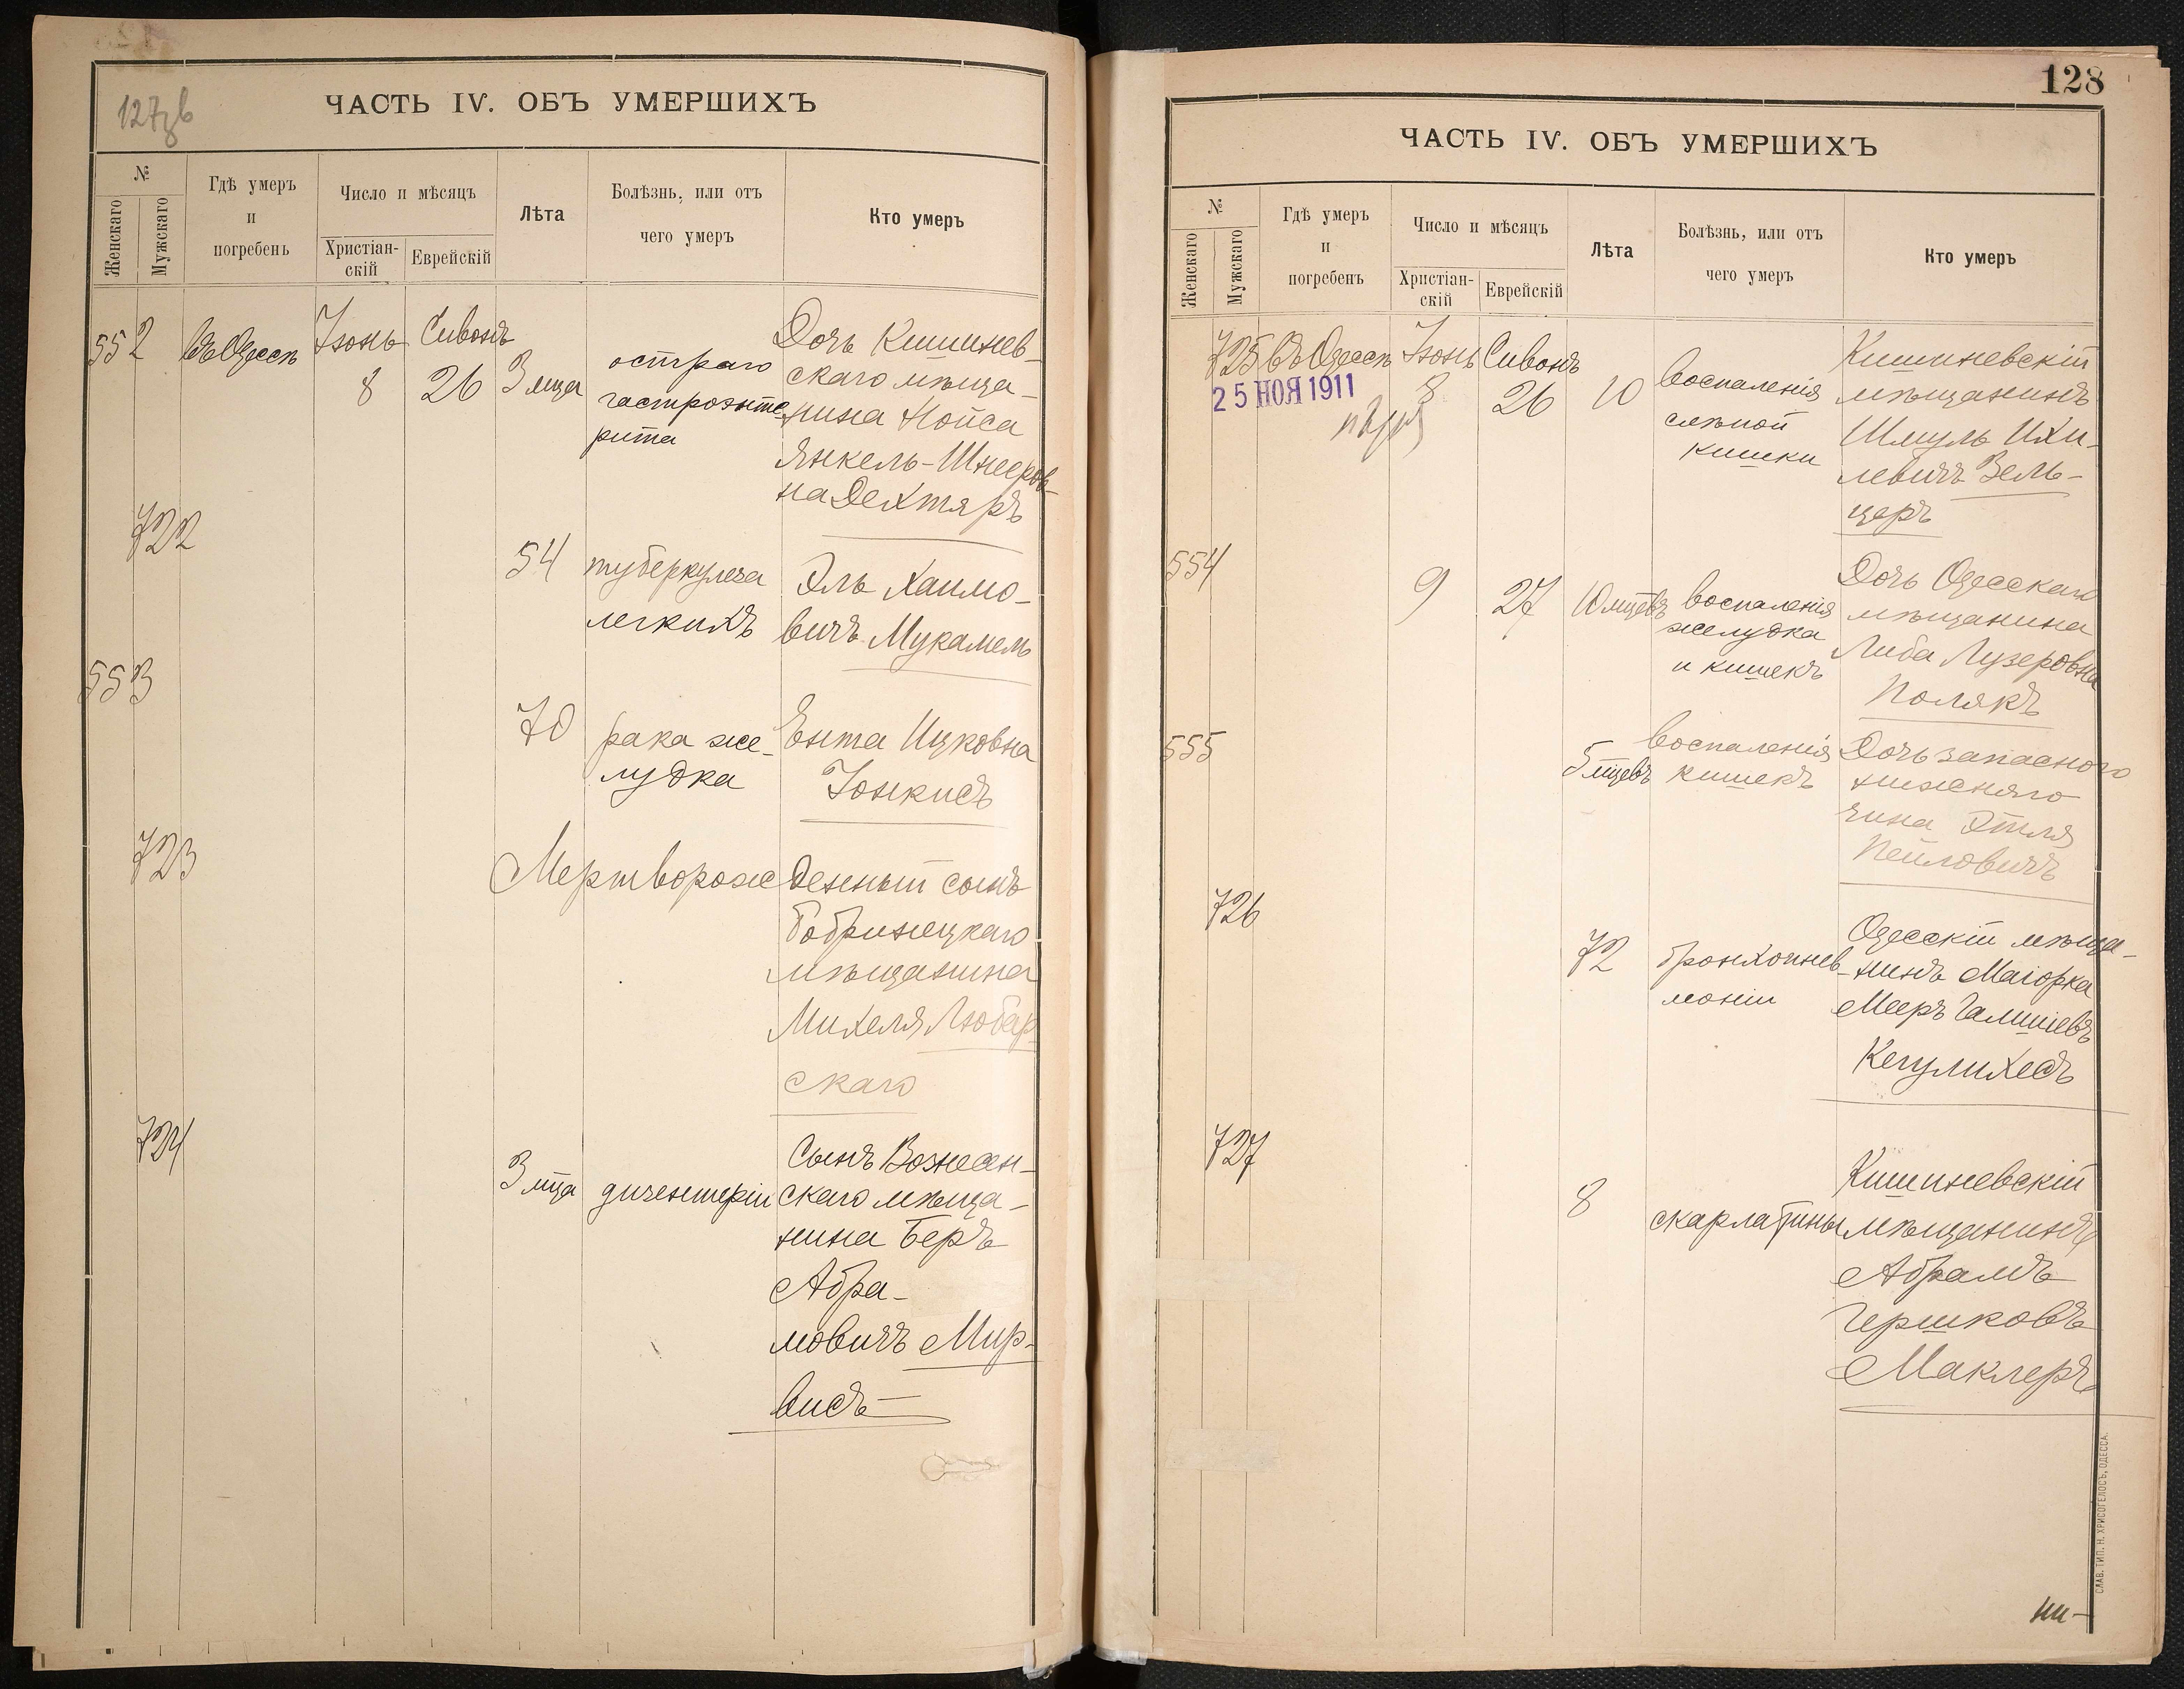 127зв
ЧАСТЬ IV. ОБЪ УМЕРШИХЪ
№
Женскаго
Мужскаго
Гдѣ умеръ
и
погребенъ
Число и мѣсяцъ
Христіан-
скій
Еврейскій
Лѣта
Болѣзнь, или отъ
чего умеръ
Кто умеръ
552
въ Одессѣ
Іюнь
8
Сивонъ
26
3 мца
остраго
гастроэнте
рита
Дочь Кишинев-
скаго мѣща-
нина Нойса
Янкель-Шнееров-
на Дехтяръ
722
54
туберкулеза
легкихъ
Эль Хаимо-
вичъ Мукамель
553
70
рака же-
лудка
Ента Ицковна
Іонкисъ
723
Мертворожденный сынъ
бобринецкаго
мѣщанина
Михеля Любар-
скаго
724
3 мца
дизентеріи
Сынъ Вознесен-
скаго мѣща-
нина Беръ
Абра-
мовичъ Мир-
висъ
128
ЧАСТЬ IV. ОБЪ УМЕРШИХЪ
№
Женскаго
Мужскаго
Гдѣ умеръ
и
погребенъ
Число и мѣсяцъ
Христіан-
скій
Еврейскій
Лѣта
Болѣзнь, или отъ
чего умеръ
Кто умеръ
725
Въ Одессѣ
25 НОЯ 1911
Іюнь
8
Сивонъ
26
10
воспаленія
слѣпой
кишки
Кишиневскій
мѣщанинъ
Шмуль Ихи-
левичъ Зель-
церъ
554
9
27
10 мцевъ
воспаленія
желудка
и кишекъ
Дочь Одесскаго
мѣщанина
Либа Лузеровна
Полякъ
555
5 мцевъ
воспаленія
кишекъ
Дочь запасного
нижняго
чина Этля
Пейловичъ
726
72
бронхопнев-
моніи
Одесскій мѣща-
нинъ Маіорка
Мееръ Галишевъ
Кегулихесъ
727
8
скарлатины
Кишиневскій
мѣщанинъ
Абрамъ
Гершковъ
Маклеръ
СЛАВ. ТИП. Н. ХРИСОГЕЛОСЪ, ОДЕССА.
ни-